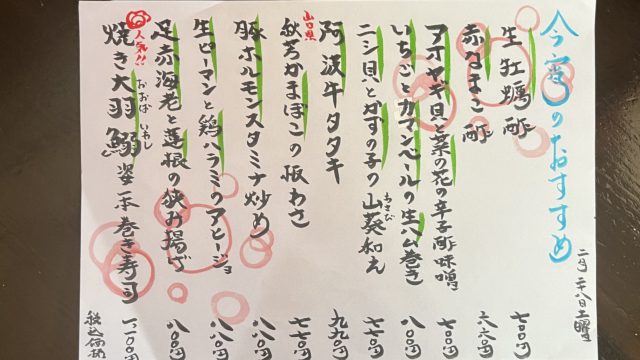 今宵のおすすめ
二月二十八日土曜
生牡蠣酢 七〇〇円
赤なまこ酢 六六〇円
アオヤギ貝と菜の花の辛子酢味噌 七〇〇円
いちごとカマンベールの生ハム巻き 八〇〇円
ニシ貝とかずの子の山葵和え 七七〇円
わさび
阿波牛タタキ 九九〇円
山口県
秋芳かまぼこの板わさ 七七〇円
豚ホルモンスタミナ炒め 八八〇円
生ピーマンと鶏ハラミのアヒージョ 八八〇円
足赤海老と蓮根の挟み揚げ 八〇〇円
人気!!
おおば いわし
焼き大羽鰯姿一本巻き寿司 一、一〇〇円
税込価格